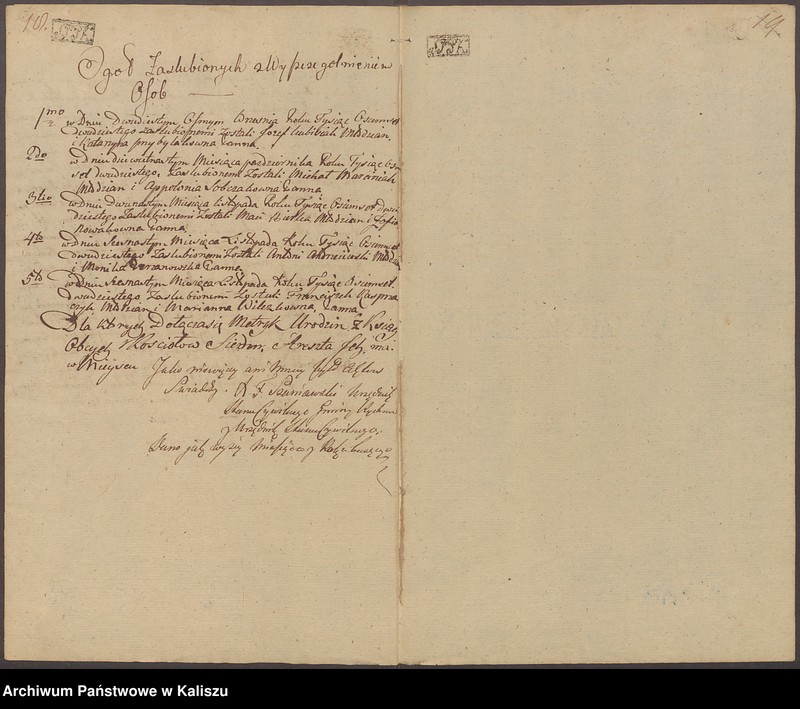 18.
19
Ogół Zaslubionych z Wyszczegolnieniem
Osób
1mo w Dniu Dwudziestym Osmym Wresnia Roku Tysiąc Osimset
dwudziestego Zaslubionemi Zostali Jozef Młdzian
i Katarzyna Przybylakowna Panna
2do w dniu dziewietnastym Miesiąca pazdziernika Roku Tysiąc
set dwudziestego. Zaslubionemi Zostali Michał Marciniak
Młdzian i Appolonia Sobczakowna Panna
3tio w Dniu Dwunastym Miesiąca Listopada Roku Tysiąc Osimset dwu
dziestego Zaslubionemi Zostali Młdzian i Zofia
Nowakowna Panna
4to w Dniu Szesnastym Miesiąca Listopada Roku Tysiąc Osimset
dwudziestego Zaslubionemi Zostali Antoni Andrzeiewski
i Monika Panna
5to w Dniu Szesnastym Miesiąca Listopada Roku Tysiąc Osimset
dwudziestego Zaslubionemi Zostali Franciszek Kaspra
czyk Młdzian i Marianna Wilczkowna Panna
Dla Ktorych Dołącza się Metryk Urodzin z Księg
Obcych Kosciołow Siedm, a Reszta
w Mieyscu Jako niewięcy ani mniey Aktow
Swiadczę. X F. Szaniawski Urzędnik
Stanu Cywilnego Gminy
Urzędnik Stanu Cywilnego
Dano jak wyżey Miesiąca i Roku
Archiwum Państwowe w Kaliszu